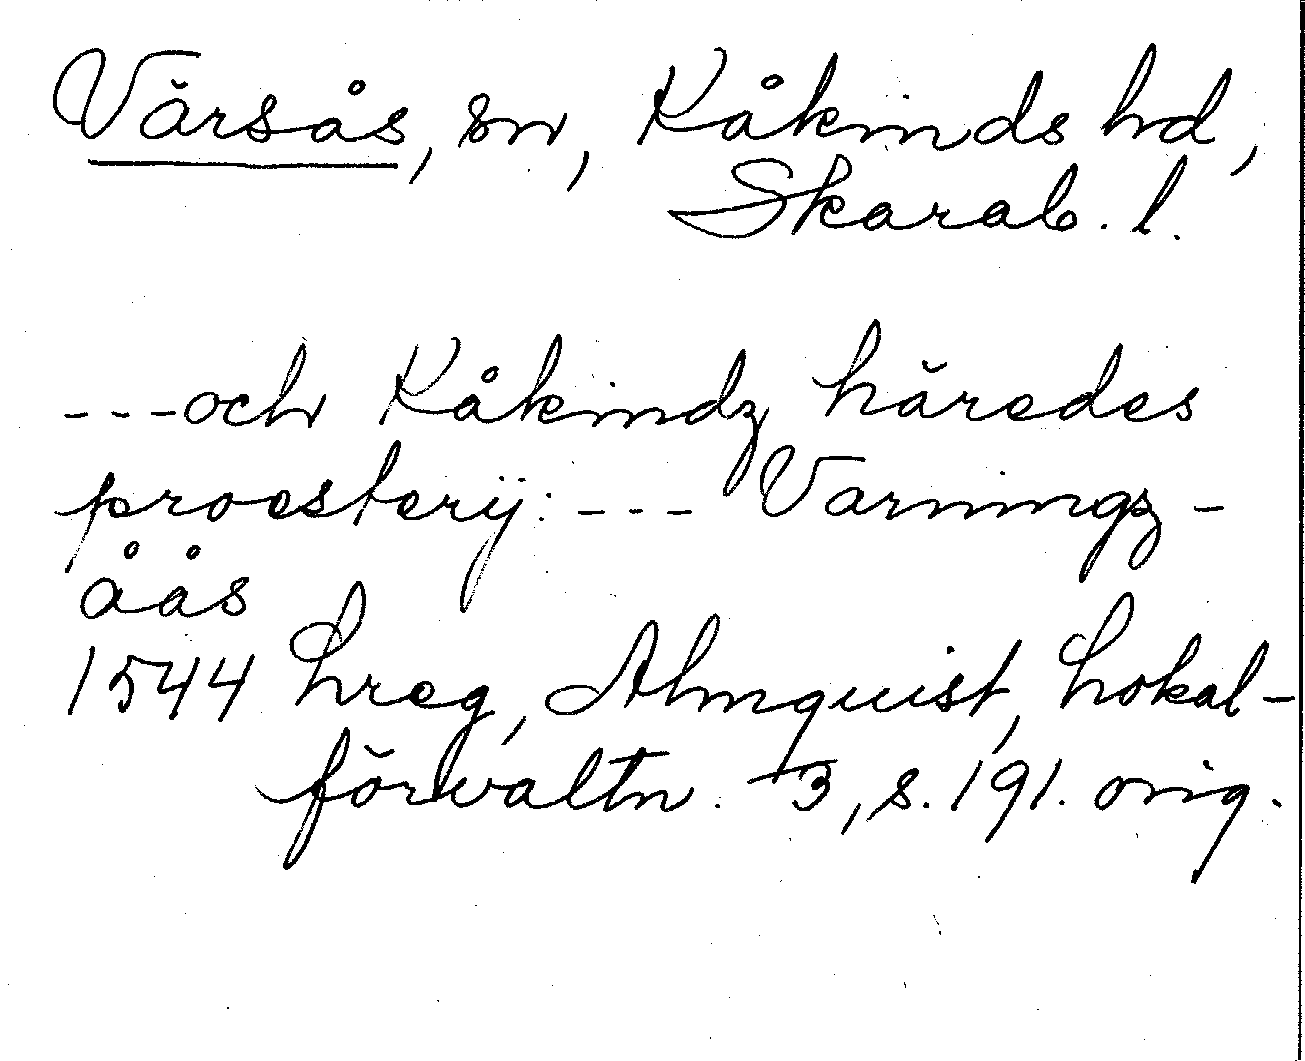 Värsås, sn, Kåkinds hd,
Skarab. l.
---och Kåkindz häredes
proesterij: --- Varningz-
åås
1544 Lreg, Almquist, Lokal-
förvaltn. 3, s. 191. orig.